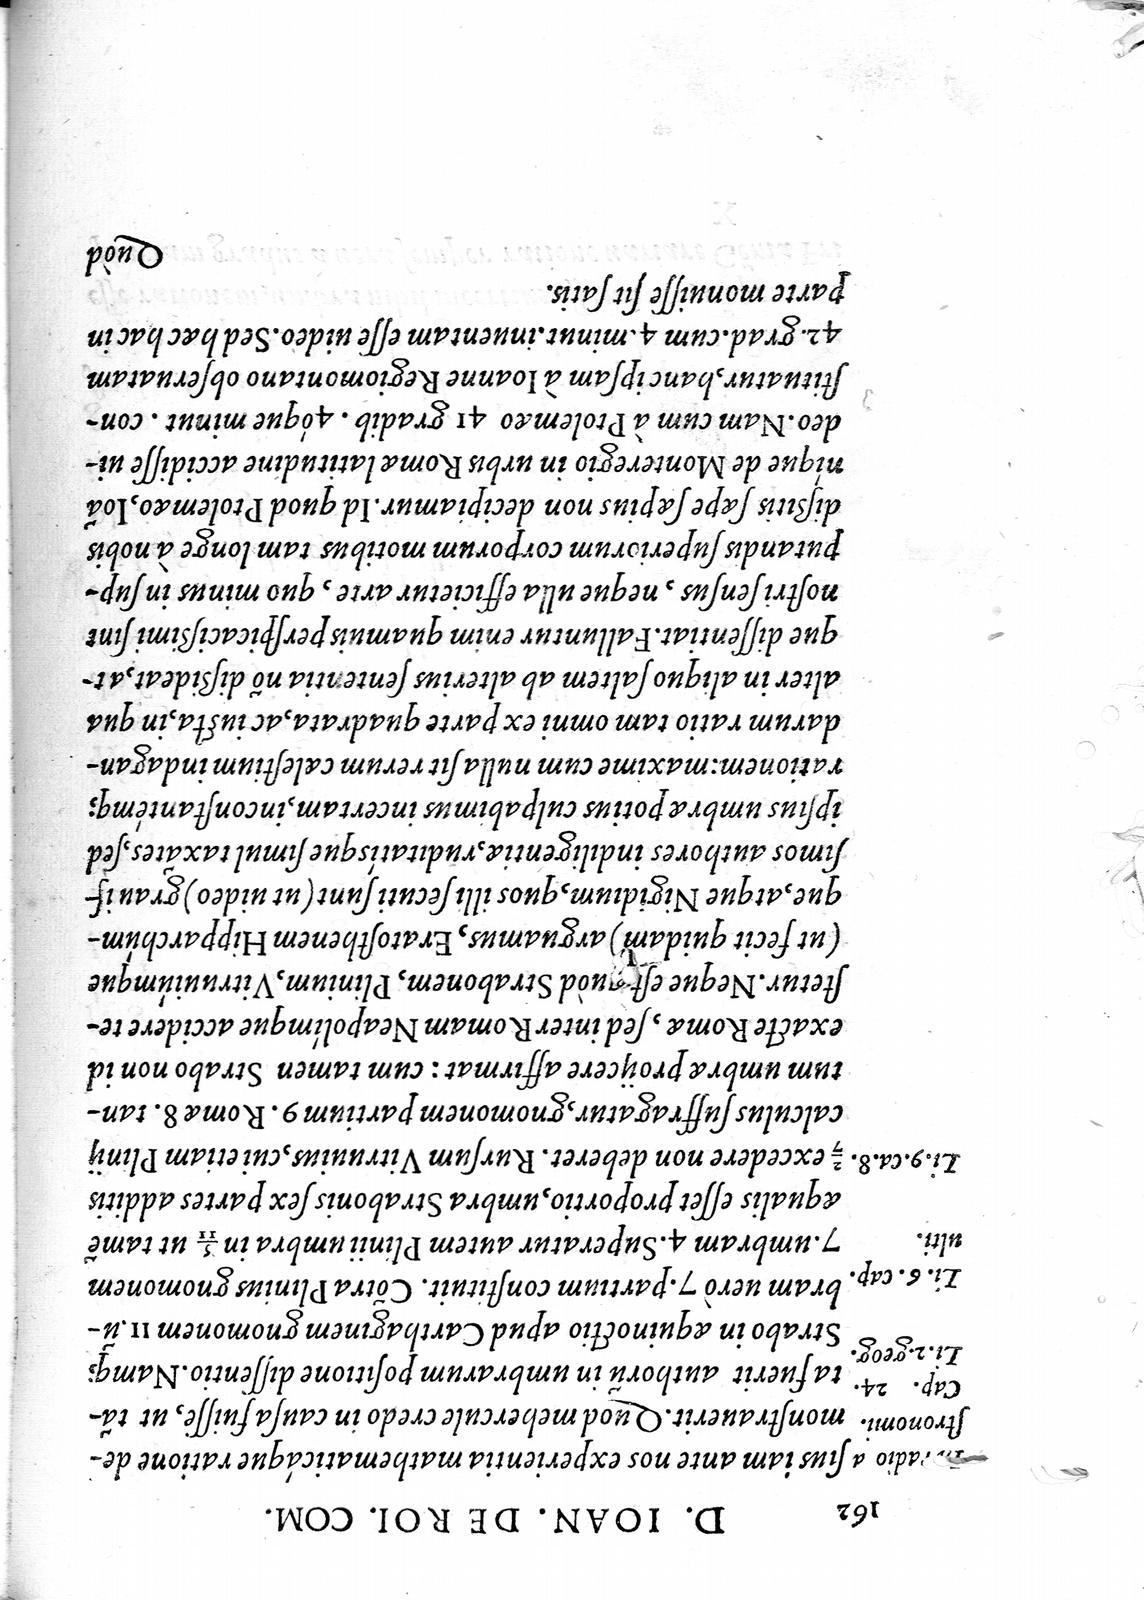 162
D. IOAN. DE ROI. COM.
radio a
ſtronomi.
Cap. 24.
Li.2.geog.
Li. 6. cap.
ulti.
Li.9.ca.8.
ſius iam ante nos experientia mathematicáque ratione de-
monſtrauerit. Quod mehercule credo in cauſa fuiſſe, ut tā-
ta fuerit authorū in umbrarum poſitione diſſentio. Namq;
Strabo in æquinoctio apud Carthaginem gnomonem 11. ū-
bram uerò 7. partium conſtituit. Cōtra Plinius gnomonem
7. umbram 4. Superatur autem Plinii umbra in 5/11 ut tamē
æqualis eſſet proportio, umbra Strabonis ſex partes additis
2/7 excedere non deberet. Rurſum Vitruuius, cui etiam Plinij
calculus ſuffragatur, gnomonem partium 9. Romæ 8. tan-
tum umbræ proijcere affirmat: cum tamen Strabo non id
exacte Romæ, ſed inter Romam Neapolímque accidere te-
ſtetur. Neque eſt quòd Strabonem, Plinium, Vitruuiúmque
(ut fecit quidam) arguamus, Eratoſthenem Hipparchúm-
que, atque Nigidium, quos illi ſecuti ſunt (ut uideo) grauiſ-
ſimos authores indiligentiæ, ruditatísque ſimul taxātes, ſed
ipſius umbræ potius culpabimus incertam, inconſtantémq;
rationem: maxime cum nulla ſit rerum cæleſtium indagan-
darum ratio tam omni ex parte quadrata, ac iuſta, in qua
alter in aliquo ſaltem ab alterius ſententia nō diſsideat, at-
que diſſentiat. Falluntur enim quamuis perſpicaciſsimi ſint
noſtri ſenſus, neque ulla efficietur arte, quo minus in ſup-
putandis ſuperiorum corporum motibus tam longe à nobis
diſsitis ſæpe ſæpius non decipiamur. Id quod Ptolemæo, Ioā
níque de Monteregio in urbis Romæ latitudine accidiſſe ui-
deo. Nam cum à Ptolemæo 41 gradib. 40que minut. con-
ſtituatur, hanc ipſam à Ioanne Regiomontano obſeruatam
42. grad. cum 4. minut. inuentam eſſe uideo. Sed hæc hac in
parte monuiſſe ſit ſatis.
Quòd